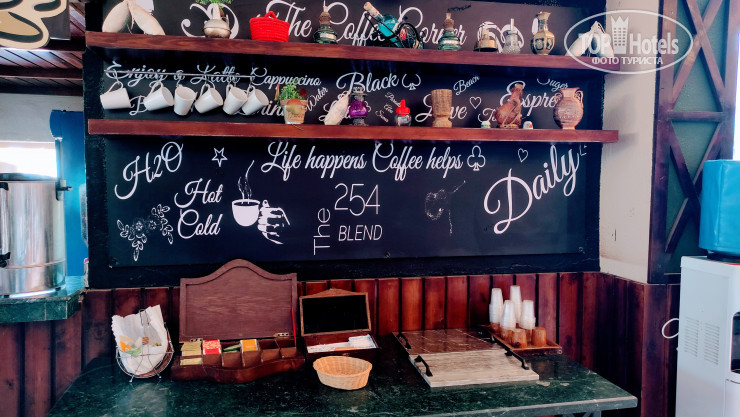 The Coffee Corner
TopHotels
ФОТО ТУРИСТА
Enjoy a Kaffe Cappuccino
Black
Bean
Sugar
Water
Love
Espresso
H2O
Life happens Coffee helps
Daily
Hot
Cold
The 254
BLEND